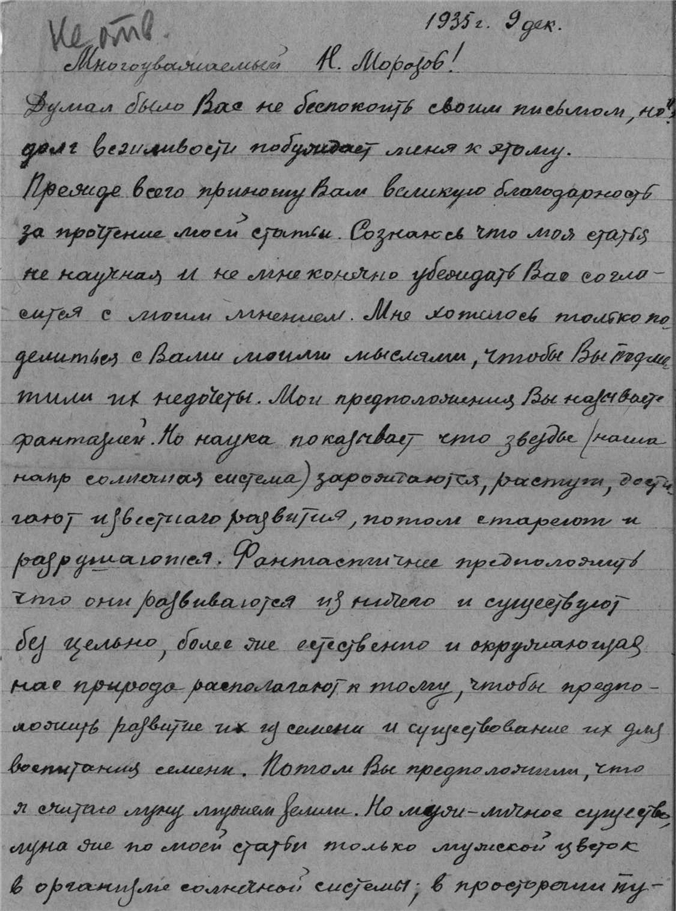 Не отв.
1935 г. 9 дек.
Многоуважаемый Н. Морозов!
Думал было Вас не беспокоить своим письмом, но
долг вежливости побуждает меня к этому.
Прежде всего приношу Вам великую благодарность
за прочтение моей статьи. Сознаюсь что моя статья
не научная и не мне конечно убеждать Вас согла-
сится с моим мнением. Мне хотелось только по
делиться с Вами моими мыслями, чтобы Вы подме
тили их недочеты. Мои предположения Вы называете
фантазией. Но наука показывает что звезды (наша
напр солнечная система) зарожтаются, растут, дости
гают известнаго развития, потом стареют и
разрушаются. Фантастичнее предположить
что они развиваются из ничего и существуют
без цельно, более же естественно и окружающая
нас природа располагают к тому, чтобы предпо-
ложить развитие их из семени и существование их для
воспитания семени. Потом Вы предположили, что
я считаю луну мужем земли. Но муж-личное существо,
луна же по моей статьи только мужской цветок
в организме солнечной системы; в просторечии пу-